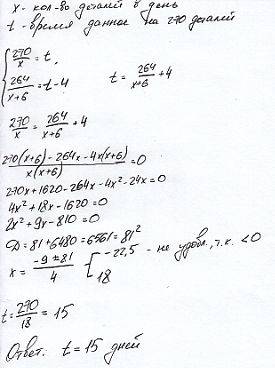 x - кол-во деталей в день
t - время данное на 270 деталей
{ 270/x = t,
264/(x+6) = t-4     t = 264/(x+6) + 4
270/x = 264/(x+6) + 4
(270(x+6) - 264x - 4x(x+6))/(x(x+6)) = 0
270x + 1620 - 264x - 4x² - 24x = 0
4x² + 18x - 1620 = 0
2x² + 9x - 810 = 0
D = 81 + 6480 = 6561 = 81²
x = (-9 ± 81)/4 [ -22,5 - не удовл., т.к. < 0
18
t = 270/18 = 15
Ответ. t = 15 дней